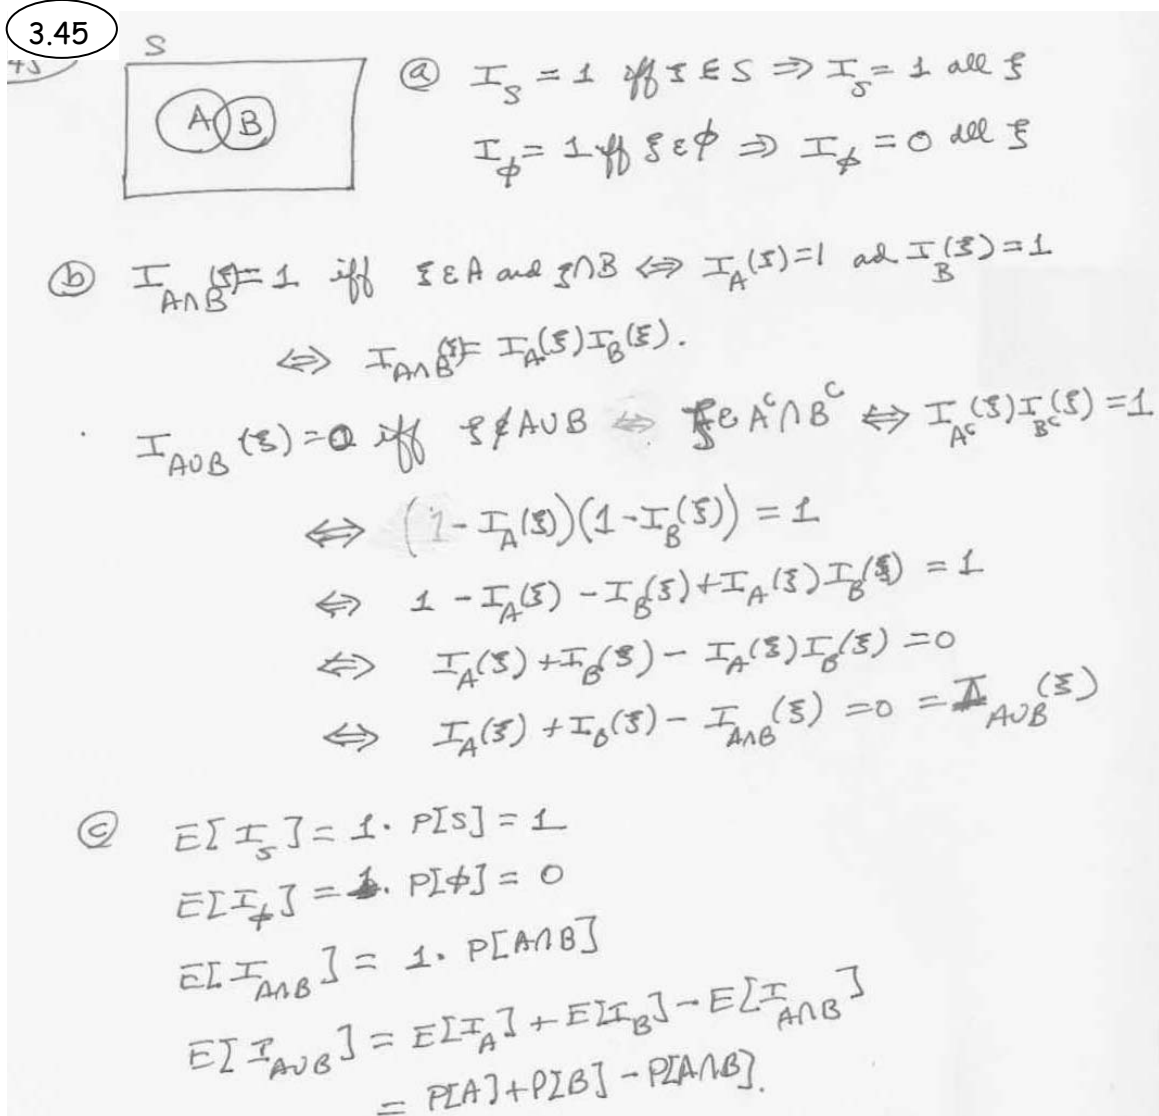 3.45
45
S
A B
ⓐ I_S = 1 iff ξ ∈ S ⇒ I_S = 1 all ξ
I_ϕ = 1 iff ξ ε ϕ ⇒ I_ϕ = 0 all ξ
ⓑ I_{A∩B}(ξ) = 1 iff ξ ε A and ξ ∩ B ⇔ I_A(ξ) = 1 ad I_B(ξ) = 1
⇔ I_{A∩B}(ξ) = I_A(ξ) I_B(ξ).
I_{A∪B}(ξ) = 0 iff ξ ∉ A∪B ⇔ ξ ∈ A^c ∩ B^c ⇔ I_{A^c}(ξ) I_{B^c}(ξ) = 1
⇔ (1 - I_A(ξ))(1 - I_B(ξ)) = 1
⇔ 1 - I_A(ξ) - I_B(ξ) + I_A(ξ) I_B(ξ) = 1
⇔ I_A(ξ) + I_B(ξ) - I_A(ξ) I_B(ξ) = 0
⇔ I_A(ξ) + I_B(ξ) - I_{A∩B}(ξ) = 0 = I_{A∪B}(ξ)
ⓒ E[I_S] = 1. P[S] = 1
E[I_ϕ] = 1. P[ϕ] = 0
E[I_{A∩B}] = 1. P[A∩B]
E[I_{A∪B}] = E[I_A] + E[I_B] - E[I_{A∩B}]
= P[A] + P[B] - P[A∩B].